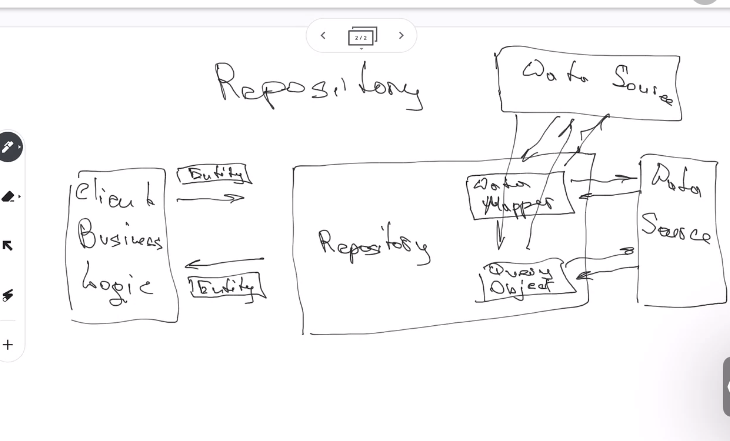 2 / 2
Repository
Data Source
Client
Business
Logic
Entity
Entity
Repository
Data
Mapper
Query
Object
Data
Source